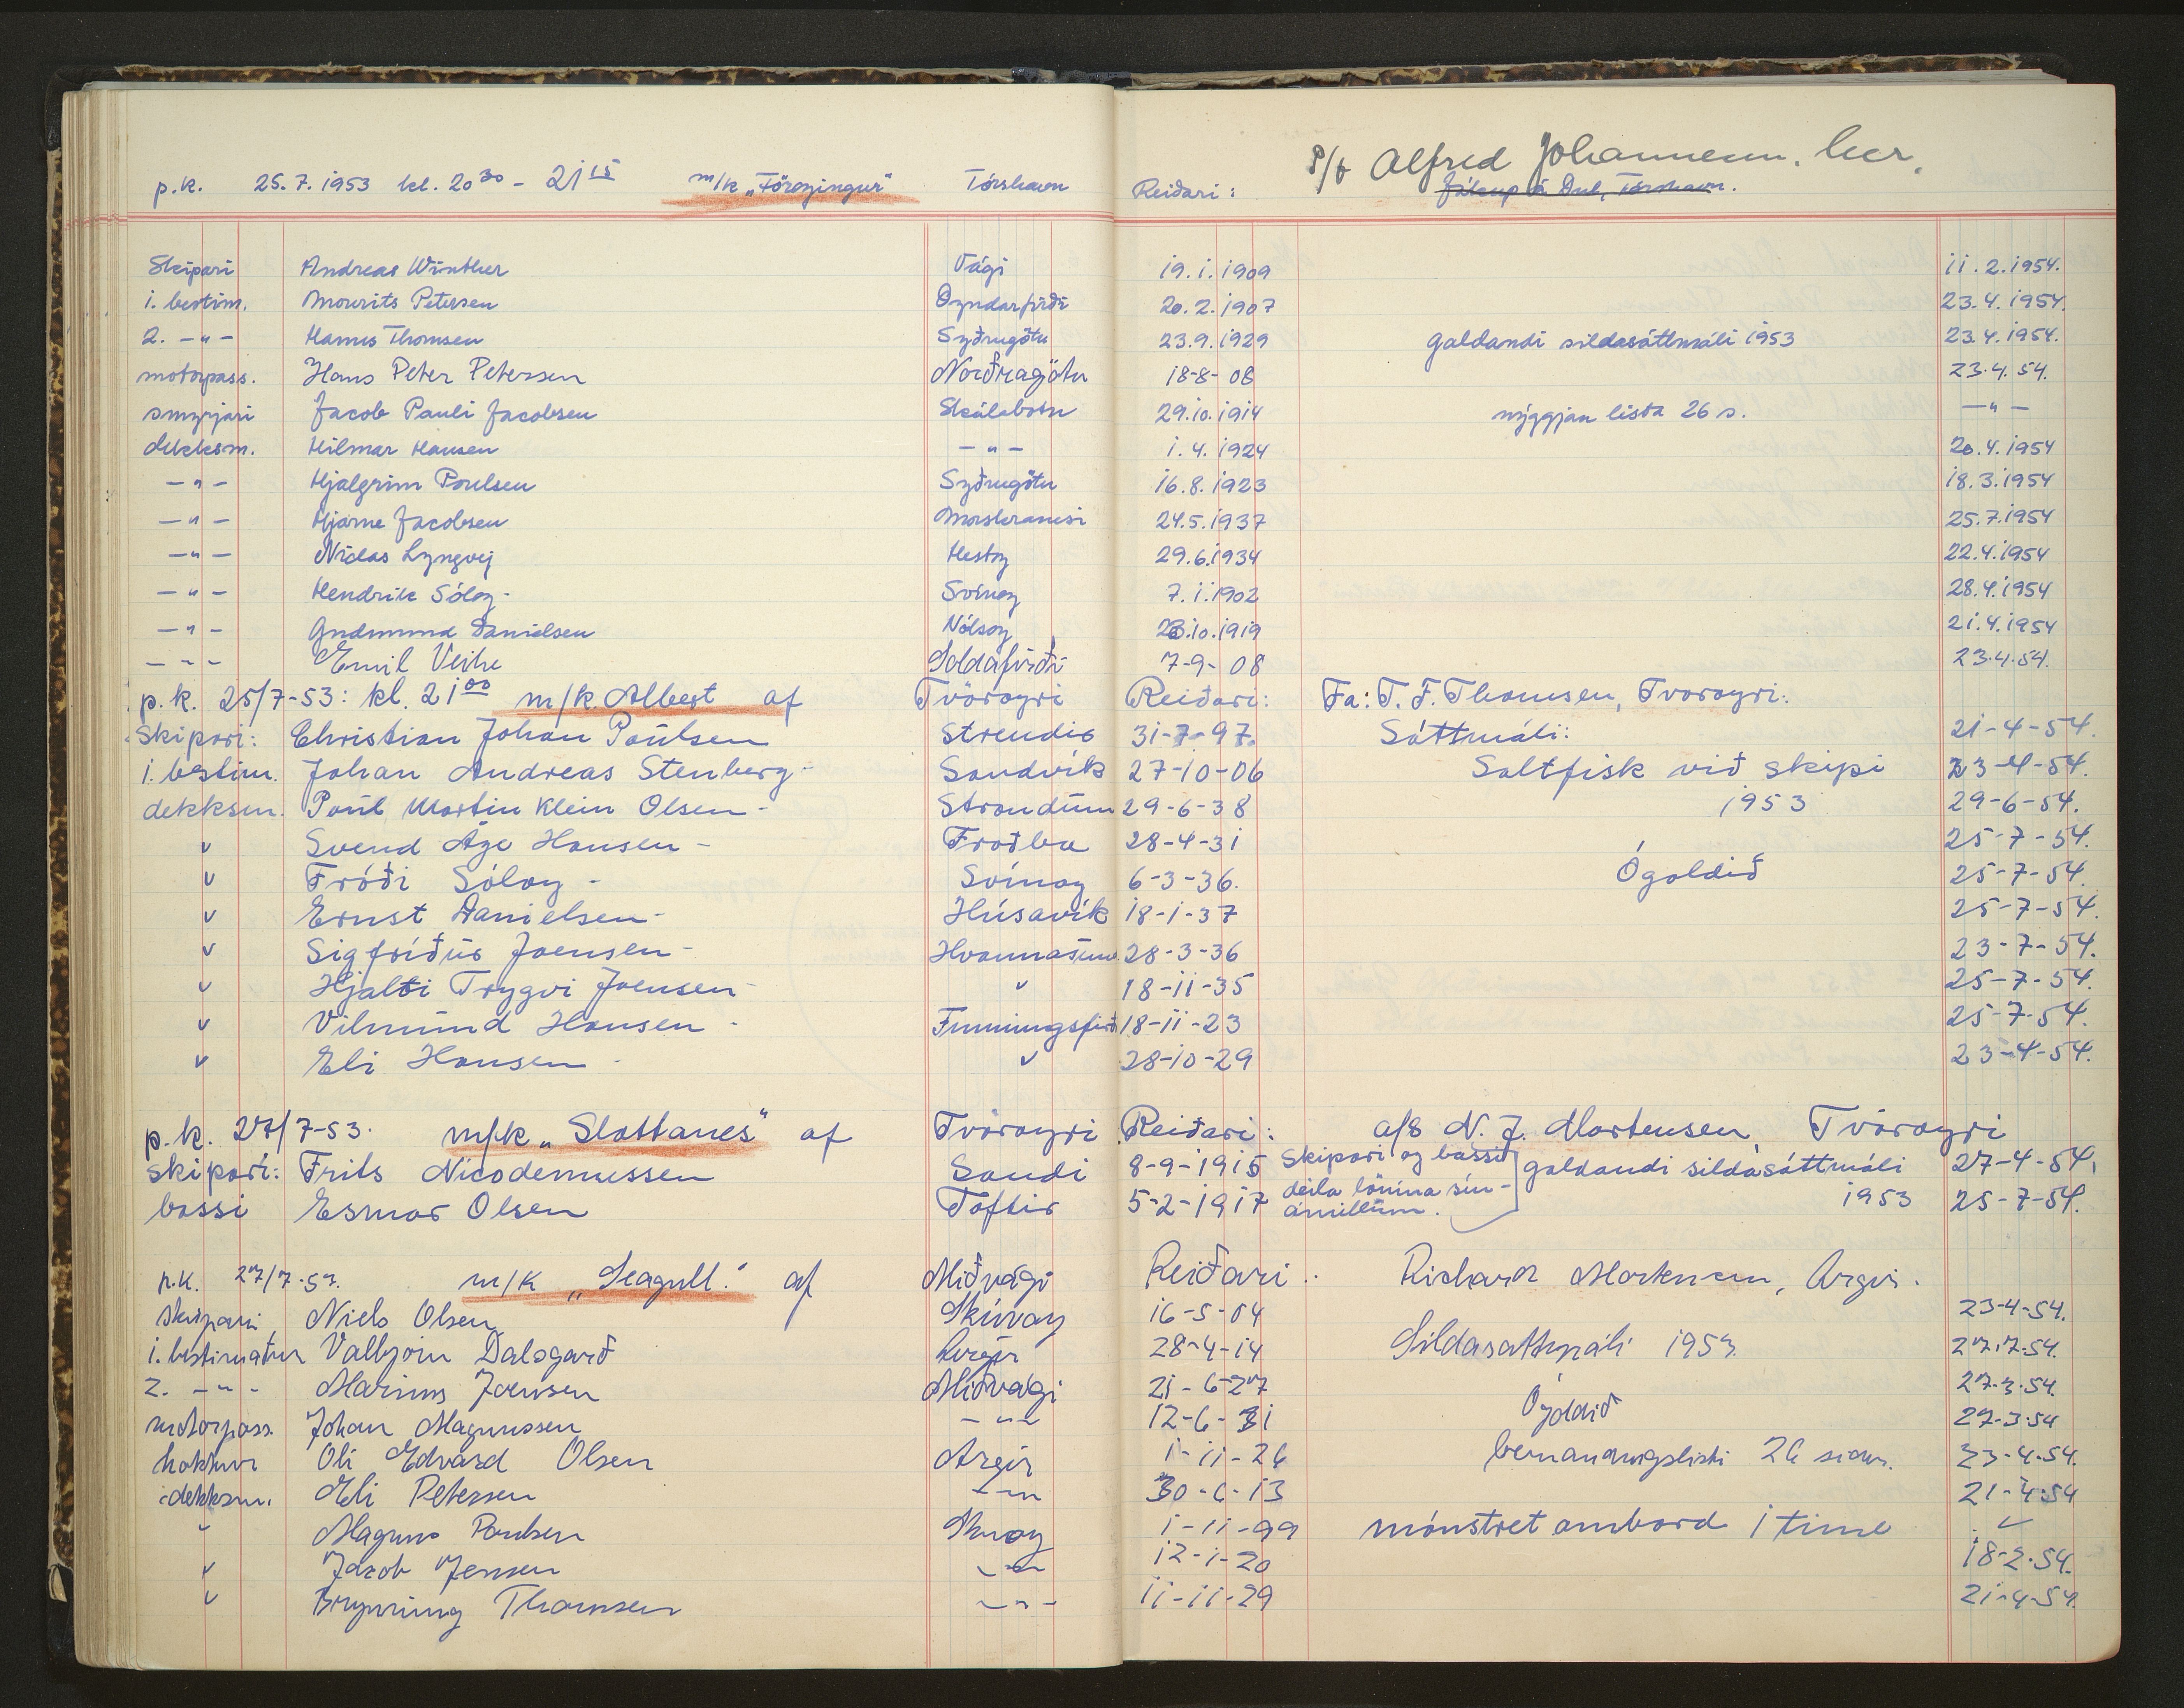 P/f Alfred Johannesen, her.
p.k. 25.7.1953 kl. 20³⁰ - 21¹⁵ m/k „Föroyingur" Tórshavn Reiðari: Jákup á Dul, Tórshavn.
Skipari Andreas Winther Vági 19.1.1909 11.2.1954.
1. bestim. Mourits Petersen Oyndarfirði 20.2.1907 23.4.1954.
2. -"- Hanus Thomsen Syðrugøtu 23.9.1929 galdandi sildasáttmáli 1953 23.4.1954.
motorpass. Hans Peter Petersen Norðragøtu 18-8-08 23.4.54.
smyrjari Jacob Pauli Jacobsen Skálabotn 29.10.1914 nýggjan lista 26 s. -"-
dekksm. Hilmar Hansen -"- 1.4.1924 20.4.1954
-"- Hjalgrim Poulsen Syðrugøtu 16.8.1923 18.3.1954
-"- Hjarne Jacobsen Morskranesi 24.5.1937 25.7.1954
-"- Niclas Lyngvej Hestoy 29.6.1934 22.4.1954
-"- Hendrik Sóloy Svínoy 7.1.1902 28.4.1954
-"- Gudmund Danielsen Nólsoy 23.10.1919 21.4.1954
-"- Emil Veihe Soldafirði 7-9-08 23.4.54.
p.k. 25/7-53: kl. 21⁰⁰ m/k. Albert af Tvöroyri Reiðari: Fa: T. F. Thomsen, Tvøroyri.
Skipari: Christian Johan Poulsen Strendir 31-7-97. Sáttmáli: 21-4-54.
1. bestim. Johan Andreas Stenberg Sandvík 27-10-06 Saltfisk við skipi 23-4-54.
dekksm. Poul Martin Klein Olsen Strondum 29-6-38 1953 29-6-54.
" Svend Åge Hansen Froðba 28-4-31 25-7-54.
" Fróði Sóloy Svínoy 6-3-36. Ógoldið 25-7-54.
" Ernst Danielsen Húsavík 18-1-37 25-7-54.
" Sigfríður Joensen Hvannasund 28-3-36 23-7-54.
" Hjalti Trygvi Joensen " 18-11-35 25-7-54.
" Vilmund Hansen Funningsfirð 18-11-23 25-7-54.
" Eli Hansen " 28-10-29 23-4-54.
p.k. 27/7-53. m/k „Slættanes" af Tvöroyri Reiðari: a/s N. J. Mortensen, Tvöroyri
skipari: Frits Nicodemussen Sandi 8-9-1915 Skipari og bassi galdandi sildasáttmáli 27-4-54.
bassi Esmar Olsen Toftir 5-2-1917 deila lönina sín- ámillum. 1953 25-7-54.
p.k. 27/7-53. m/k „Seagull." af Miðvági Reiðari: Richard Mortensen, Argir.
skipari Niels Olsen Skúvoy 16-5-04 23-4-54.
1. bestimatur Valbjörn Dalsgarð Argir 28-4-14 Sildasáttmáli 1953 27.7.54.
2. -"- Marius Joensen Miðvági 21-6-27 27.3.54.
motorpass. Johan Magnussen -"- 12-6-31 Ógoldið 27-3-54
kokkur Oli Edvard Olsen Argir 1-11-26 bemanningslisti 26 sidur. 23-4-54.
dekksm. Eli Petersen -"- 30-6-13 21-4-54
" Magnus Poulsen Skuoy 1-11-99 mónstret ombord 1 time "
" Jacob Jensen -"- 12-1-20 18-2-54.
" Brynning Thomsen -"- 11-11-29 21-4-54.